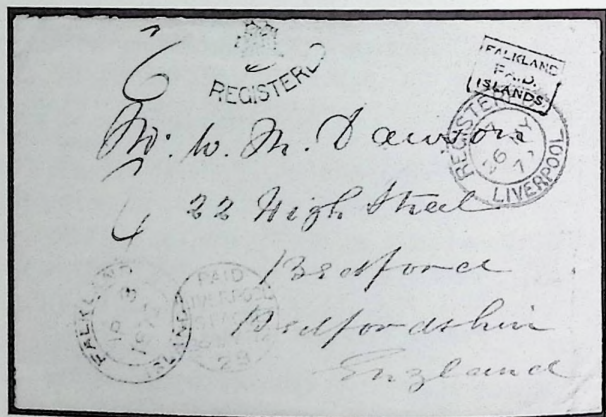 6
REGISTERED
FALKLAND
PAID.
ISLANDS
REGISTERED
LIVERPOOL
Mr. W. M. Dawson
22 High Street
Bedford
Bedfordshire
England
FALKLAND
PAID
LIVERPOOL